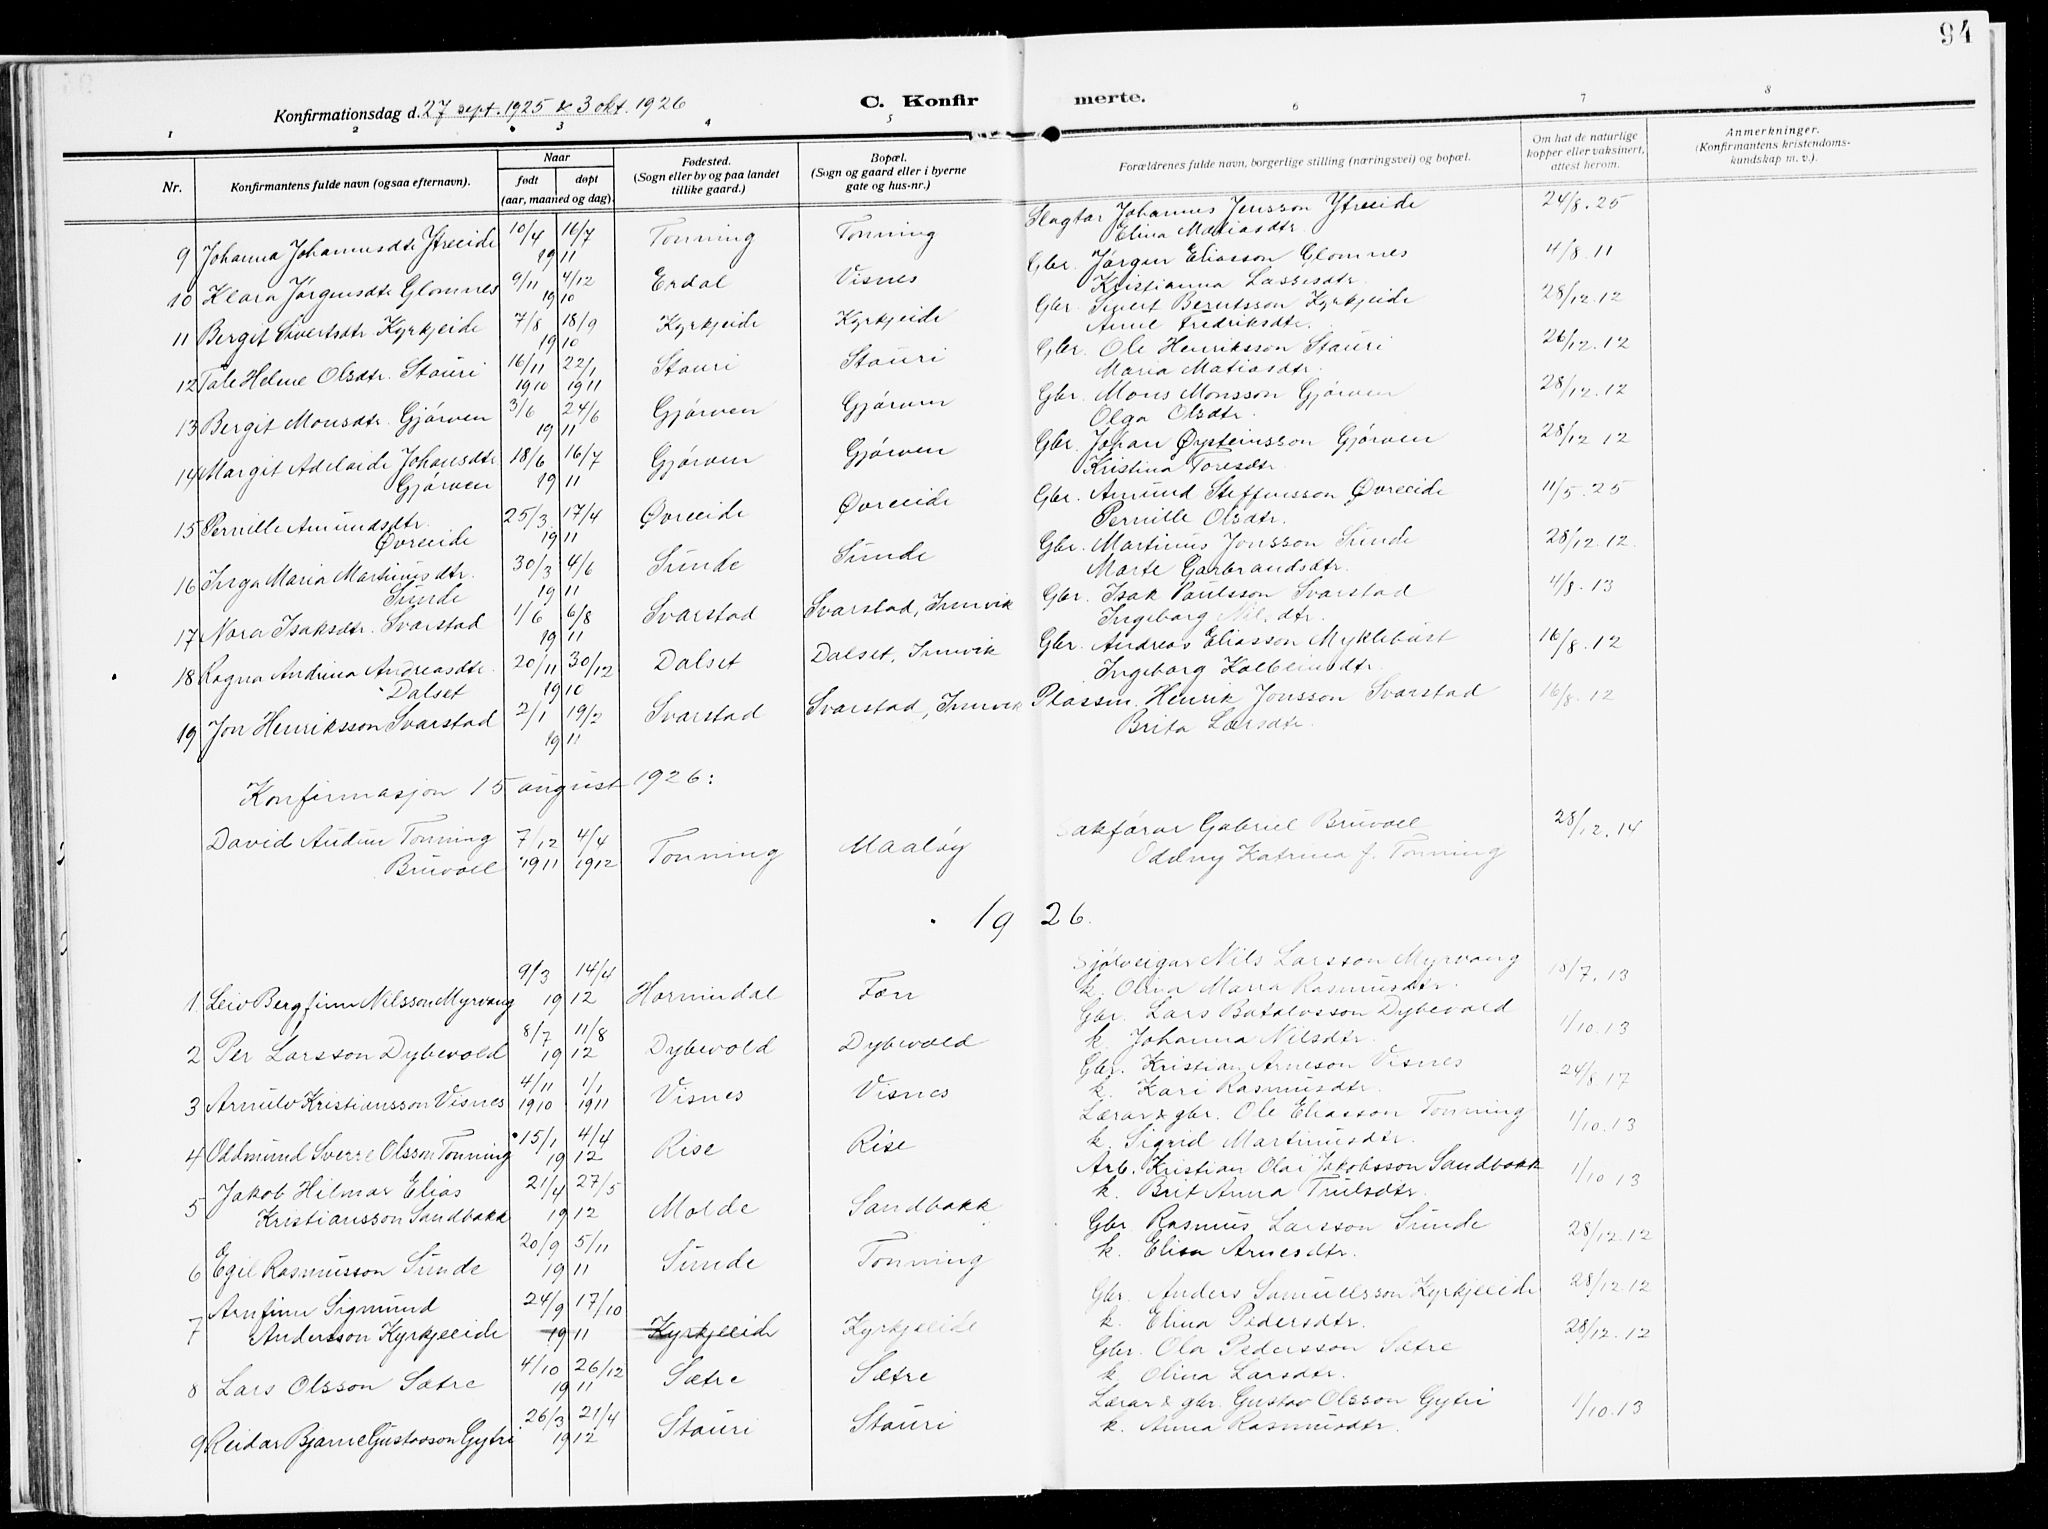 94
Konfirmationsdag d. 27 sept. 1925 & 3 okt. 1926 C. Konfirmerte.
1 2 3 4 5 6 7 8
Nr. Konfirmantens fulde navn (ogsaa efternavn). Naar født døpt (aar, maaned og dag). Fødested. (Sogn eller by og paa landet tillike gaard.) Bopæl. (Sogn og gaard eller i byerne gate og hus-nr.) Forældrenes fulde navn, borgerlige stilling (næringsvei) og bopæl. Om hat de naturlige kopper eller vaksinert, attest herom. Anmerkninger. (Konfirmantens kristendoms-kundskap m. v.).
9 Johanna Johannesdtr Ytreeide 10/4 16/7 1911 Tonning Tonning Slagtar Johannes Jensson Ytreeide 24/8.25
Elina Matiasdtr.
10 Klara Jørgensdtr Glomnes 9/11 4/12 1910 Erdal Visnes Gbr. Jørgen Eliasson Glomnes 4/8.11
Kristianna Lassesdtr.
11 Bergit Sivertsdtr Kyrkjeide 7/8 18/9 1910 Kyrkjeide Kyrkjeide Gbr. Sivert Berntsson Kyrkjeide 28/12.12
Anne Fredriksdtr.
12 Tale Helene Olsdtr. Stauri 16/11 1910 22/1 1911 Stauri Stauri Gbr. Ole Henriksson Stauri 26/12.12
Maria Matiasdtr.
13 Bergit Monsdtr. Gjørven 3/6 24/6 1911 Gjørven Gjørven Gbr. Mons Monsson Gjørven 28/12.12
Olga Olsdtr.
14 Margit Adelaide Johansdtr Gjørven 18/6 16/7 1911 Gjørven Gjørven Gbr. Johan Øysteinsson Gjørven 28/12 12
Kristina Toresdtr.
15 Pernille Amundsdtr. Øvreeide 25/3 17/4 1911 Øvreeide Øvreeide Gbr. Amund Steffensson Øvreeide 11/5.25
Pernille Olsdtr.
16 Inga Maria Martinusdtr. Sunde 30/3 4/6 1911 Sunde Sunde Gbr. Martinus Jonsson Sunde 28/12.12.
Marte Garbrandsdtr.
17 Nora Isaksdtr. Svarstad 1/6 6/8 1911 Svarstad Svarstad, Innvik Gbr. Isak Paulsson Svarstad 4/8.13
Ingeborg Nil.dtr.
18 Ragna Andrina Andreasdtr. Dalset 20/11 30/12 1910 Dalset Dalset, Innvik Gbr. Andreas Eliasson Myklebust 16/8.12
Ingeborg Kolbeinsdtr.
19 Jon Henriksson Svarstad 2/1 19/2 1911 Svarstad Svarstad, Innvik Plassm. Henrik Jonsson Svarstad 16/8.12
Brita Larsdtr.
Konfirmasjon 15 august 1926:
David Audun Tonning Bruvoll 7/12 1911 4/4 1912 Tonning Maaløy Sakførar Gabriel Bruvoll 28/12.14
Oddny Katrina f. Tonning
1926.
1 Leiv Bergfinn Nilsson Myrvang 9/3 14/4 1912 Hornindal Fæn Sjølveigar Nils Larsson Myrvang 18/7.13
k. Olina Maria Rasmusdtr.
2 Per Larsson Dybevold 8/7 11/8 1912 Dybevold Dybevold Gbr. Lars Batolvsson Dybevold 1/10.13
k. Johanna Nilsdtr.
3 Arnulv Kristiansson Visnes 4/11 1910 1/1 1911 Visnes Visnes Gbr. Kristian Arneson Visnes 24/8.17
k. Kari Rasmusdtr.
4 Oddmund Sverre Olsson Tonning 15/1 4/4 1912 Rise Rise Lærar & gbr. Ole Eliasson Tonning 1/10.13
k. Sigrid Martinusdtr.
5 Jakob Hilmar Elias Kristiansson Sandbakk 21/4 27/5 1912 Molde Sandbakk Arb. Kristian Olai Jakobsson Sandbakk 1/10 13
k. Brit Anna Trulsdtr.
6 Egil Rasmusson Sunde 20/9 5/11 1911 Sunde Tonning Gbr Rasmus Larsson Sunde 28/12.12
k. Elisa Arnesdtr.
7 Arnfinn Sigmund Andersson Kyrkjeeide 24/9 17/10 1911 Kyrkjeeide Kyrkjeeide Gbr. Anders Samuelsson Kyrkjeeide 28/12.12
k. Elina Pedersdtr.
8 Lars Olsson Sætre 4/10 26/12 1911 Sætre Sætre Gbr. Ola Pedersson Sætre 28/12.12
k. Olina Larsdtr.
9 Reidar Bjarne Gustavsson Gytri 26/3 21/4 1912 Stauri Stauri Lærar & gbr. Gustav Olsson Gytri 1/10.13
k. Anna Rasmusdtr.